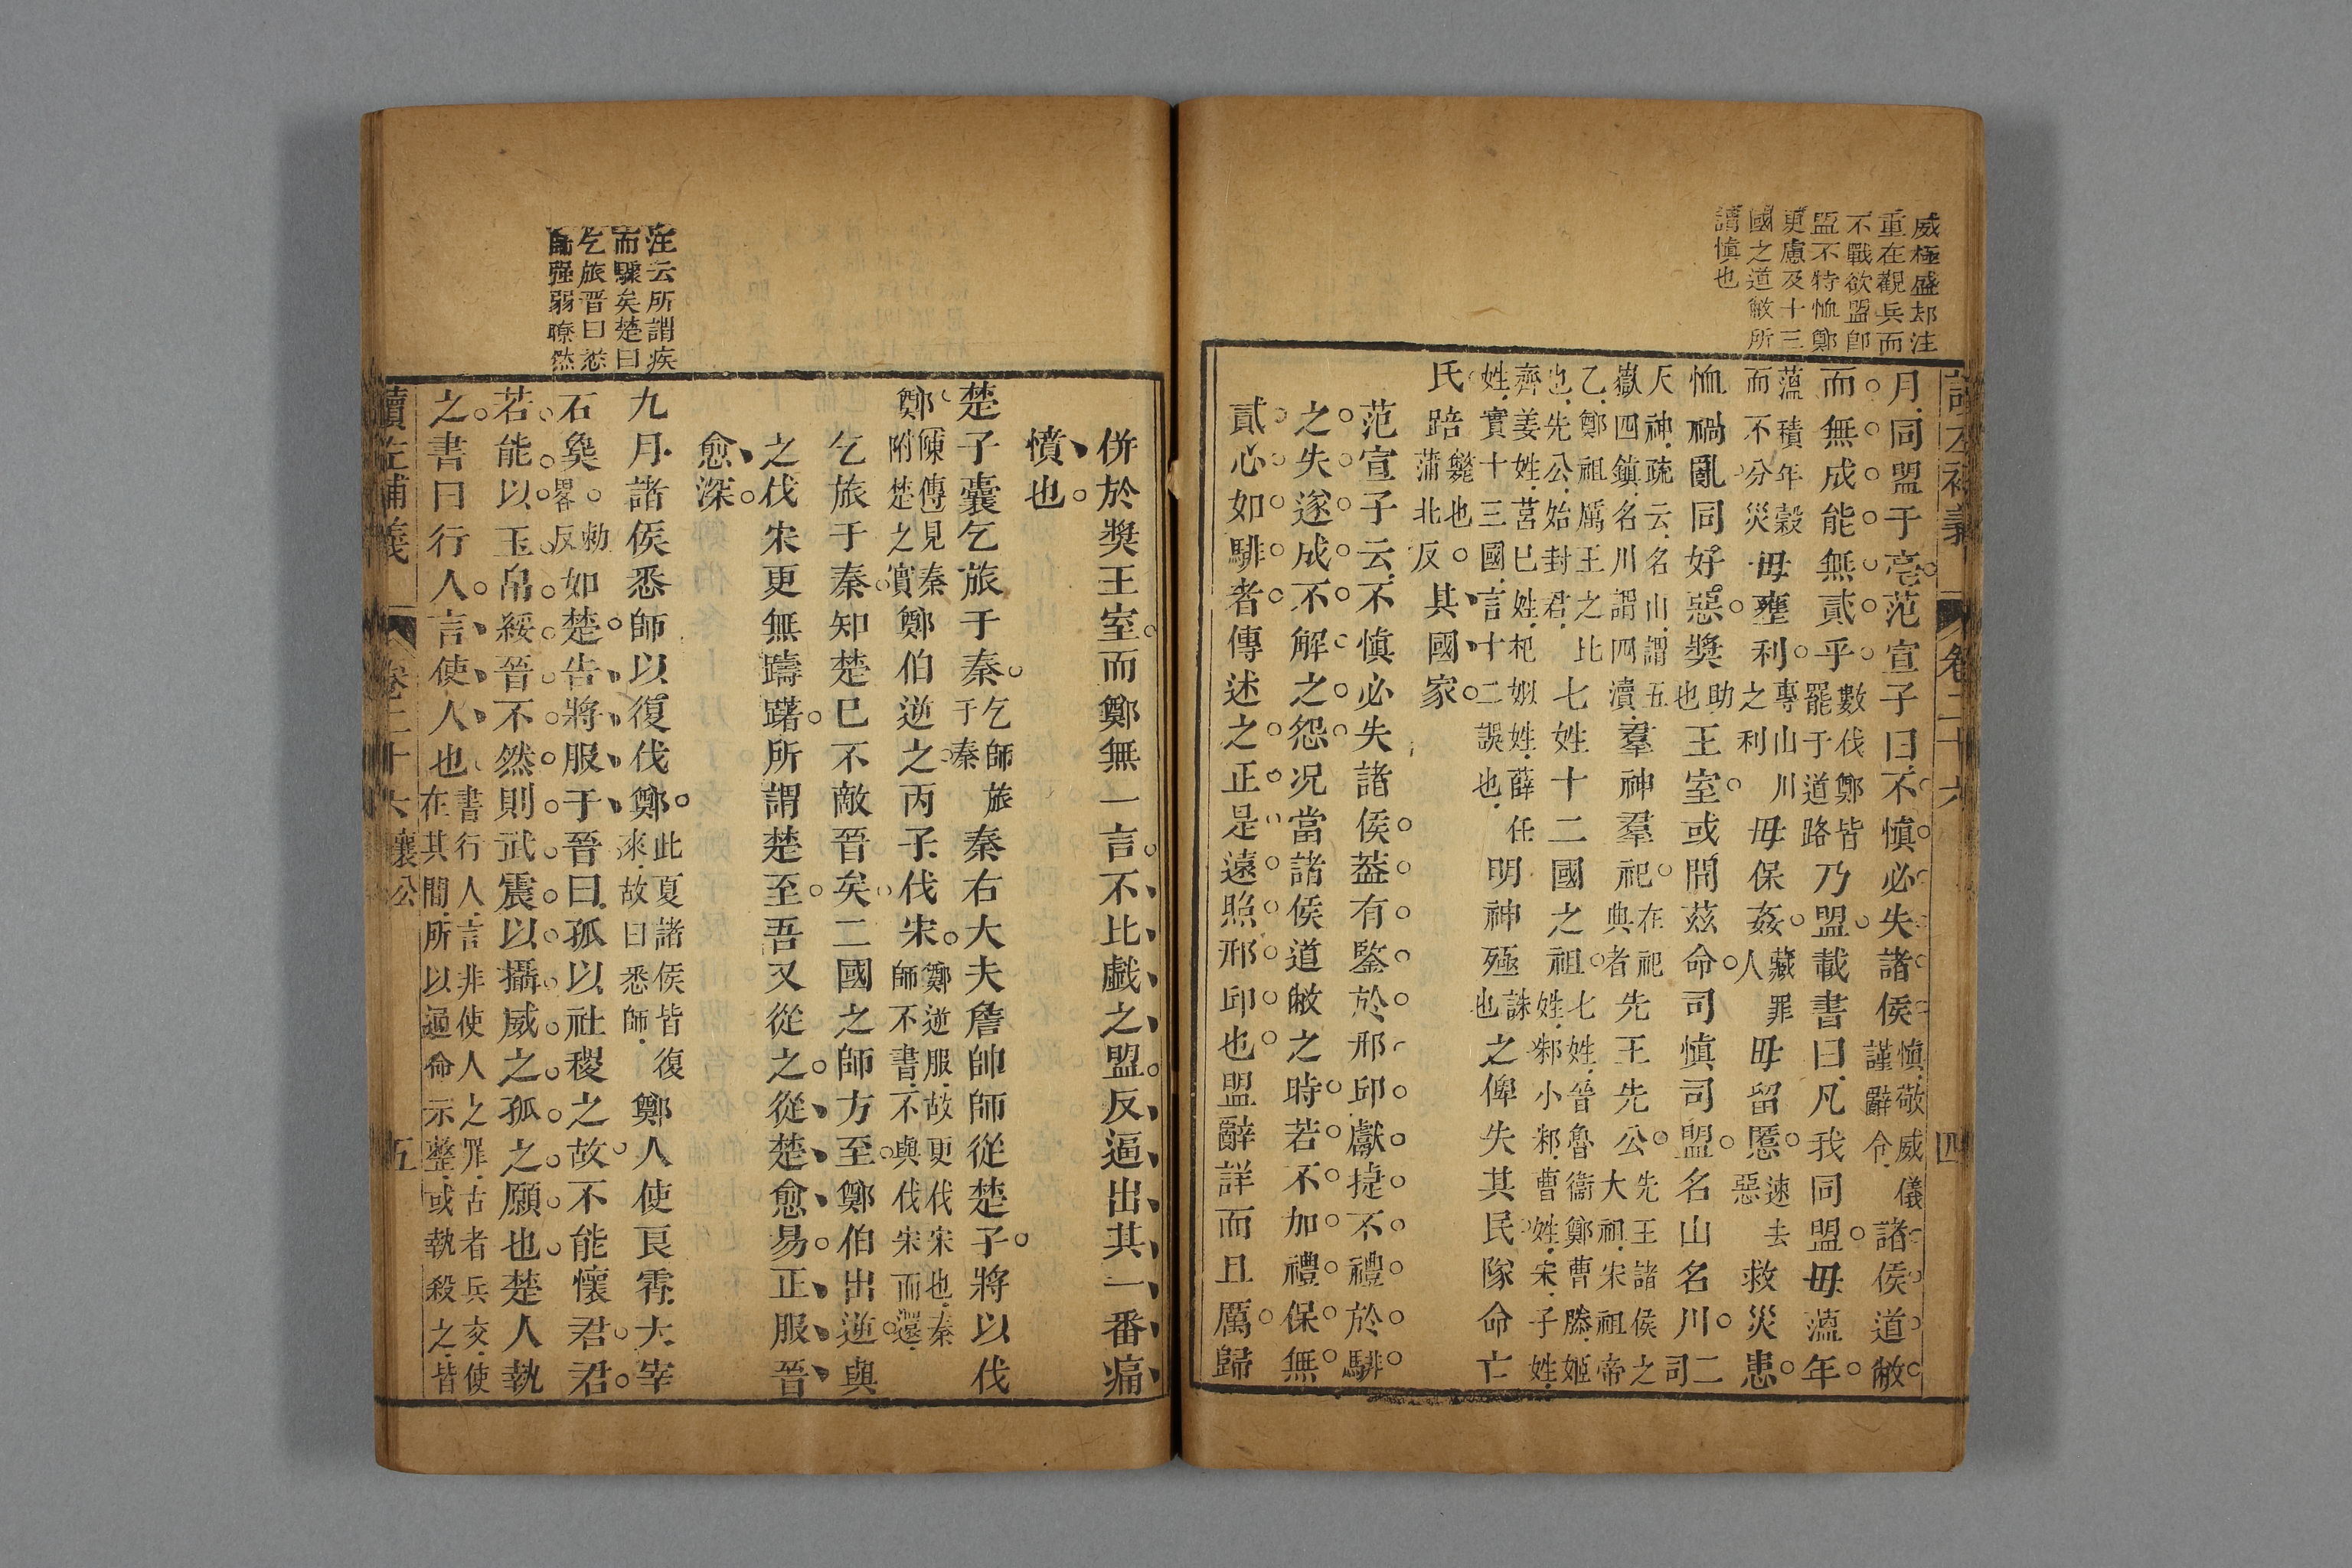 威極盛却注
重在觀兵而
不戰欲盟卽
盟不特恤鄭
更慮及十三
國之道敝所
謂慎也
讀左補義 卷二十六 四
月同盟于亳范宣子曰不慎必失諸侯慎敬威儀謹辭令諸侯道敝
而無成能無貳乎數伐鄭皆罷于道路乃盟載書曰凡我同盟毋薀年
薀積年穀而不分災毋壅利專山川之利毋保姦藏罪人毋留慝速去惡救災患
恤禍亂同好惡奬助也王室或間茲命司慎司盟名山名川二司
天神疏云名山謂五嶽四鎮名川謂四瀆羣神羣祀在祀典者先王先公先王諸侯之大祖宋祖帝
乙鄭祖厲王之比也先公始封君七姓十二國之祖七姓晉魯衛鄭曹滕姬姓邾小邾曹姓宋子姓
齊姜姓莒巳姓杞姒姓薛任姓實十三國言十二誤也明神殛誅也之俾失其民隊命亡
氏踣斃也蒲北反其國家
范宣子云不慎必失諸侯葢有鑒於邢邱獻捷不禮於騑
之失遂成不解之怨况當諸侯道敝之時若不加禮保無
貳心如騑者傳述之正是遠照邢邱也盟辭詳而且厲歸
併於奬王室而鄭無一言不比戲之盟反逼出其一番痛
憤也
楚子囊乞旅于秦乞師旅于秦秦右大夫詹帥師從楚子將以伐
鄭陳傅見秦附楚之實鄭伯逆之丙子伐宋鄭逆服故更伐宋也秦師不書不與伐宋而還
乞旅于秦知楚已不敵晉矣二國之師方至鄭伯出逆與
之伐宋更無躊躇所謂楚至吾又從之從楚愈易正服晉
愈深
注云所謂疾
而驟矣楚曰
乞旅晋曰悉
師强弱暸然
九月諸侯悉師以復伐鄭此夏諸侯皆復來故曰悉師鄭人使良霄大宰
石㚟畧勅反如楚告將服于晉曰孤以社稷之故不能懷君君
若能以玉帛綏晉不然則武震以攝威之孤之願也楚人執
之書曰行人言使人也書行人言非使人之罪古者兵交使在其間所以通命示整或執殺之皆
讀左補義 卷二十六 襄公 五